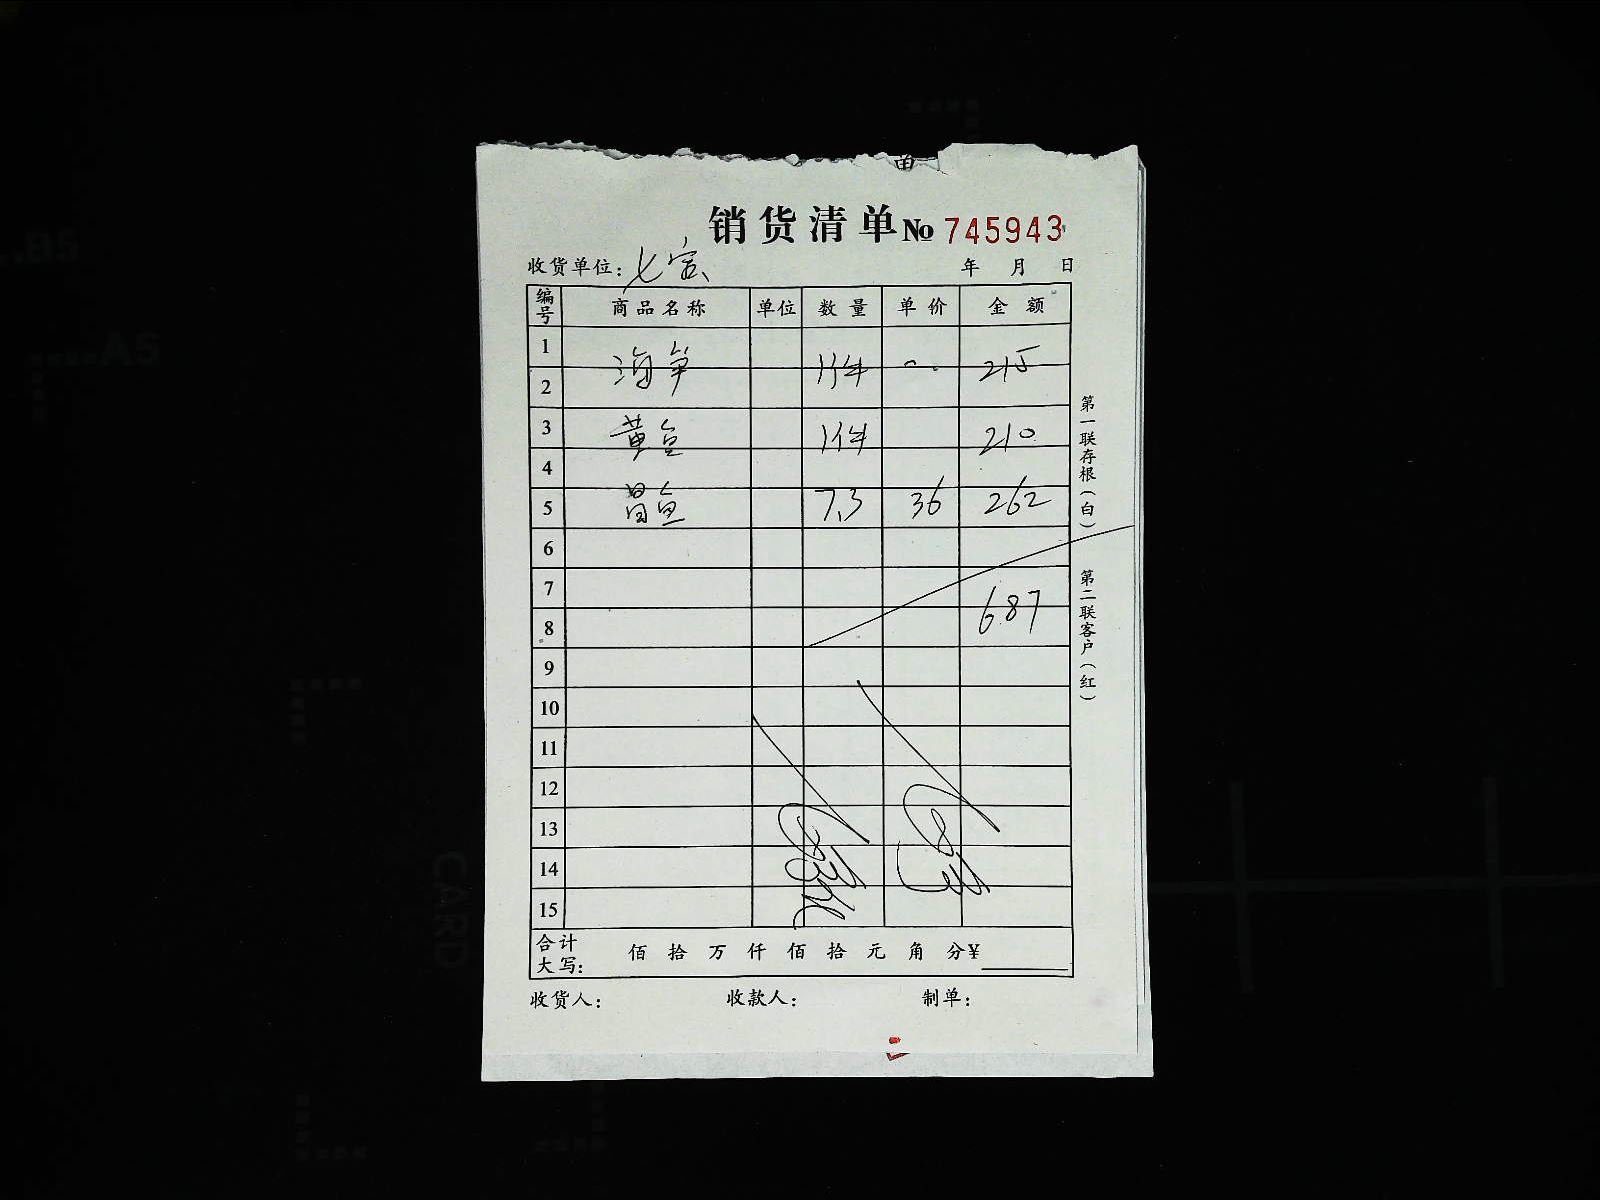 销货清单 № 745943
收货单位: 七宾 年 月 日
编号 商品名称 单位 数量 单价 金额
1 海笋 1件 215
2
3 黄鱼 1件 210
4
5 昌鱼 7.3 36 262
6
7 687
8
9
10
11
12
13
14
15
合计大写: 佰 拾 万 仟 佰 拾 元 角 分 ¥
收货人: 收款人: 制单:
第一联存根(白) 第二联客户(红)
B5
A5
CARD